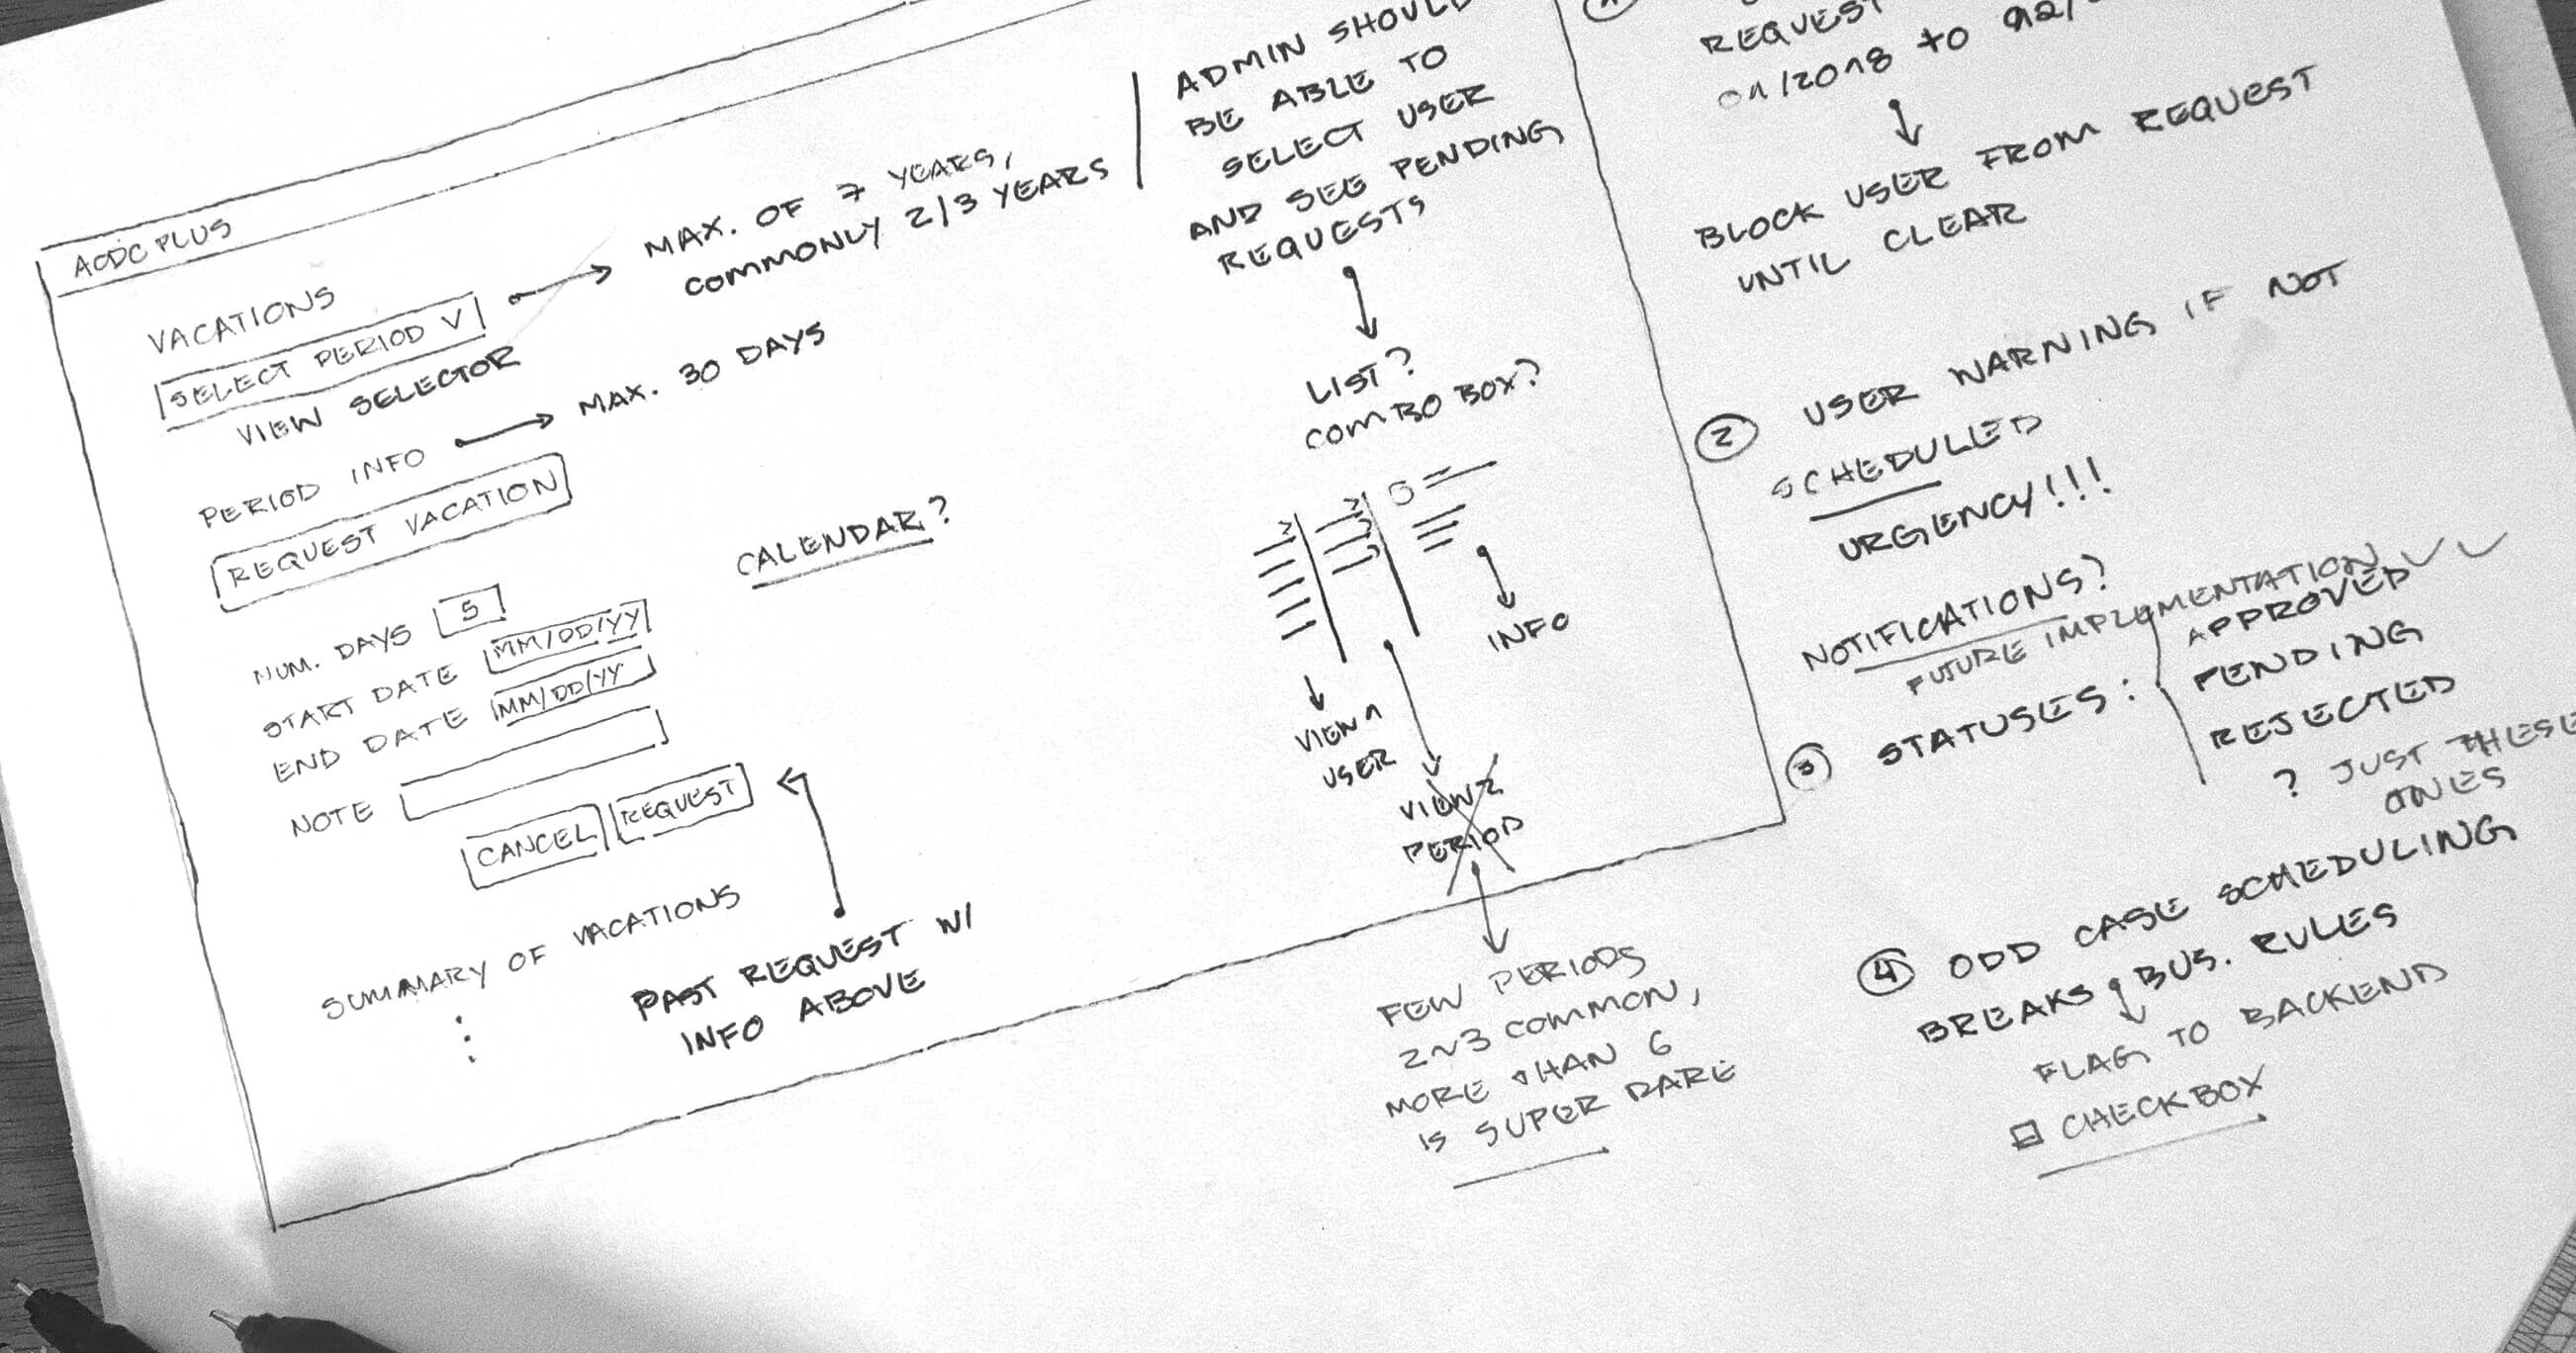 AODC PLUS
VACATIONS
SELECT PERIOD V
VIEW SELECTOR
MAX. OF 7 YEARS,
COMMONLY 2/3 YEARS
PERIOD INFO
MAX. 30 DAYS
REQUEST VACATION
CALENDAR?
NUM. DAYS 5
START DATE MM/DD/YY
END DATE MM/DD/YY
NOTE
CANCEL REQUEST
SUMMARY OF VACATIONS
PAST REQUEST W/
INFO ABOVE
ADMIN SHOULD
BE ABLE TO
SELECT USER
AND SEE PENDING
REQUESTS
LIST?
COMBO BOX?
INFO
VIEW 1
USER
VIEW 2
PERIOD
FEW PERIODS
2~3 COMMON,
MORE THAN 6
IS SUPER RARE
1
REQUEST
01/2018 TO 02/
BLOCK USER FROM REQUEST
UNTIL CLEAR
2 USER WARNING IF NOT
SCHEDULLED
URGENCY!!!
NOTIFICATIONS?
FUTURE IMPLEMENTATION
3 STATUSES:
APPROVED
PENDING
REJECTED
? JUST THESE
ONES
4 ODD CASE SCHEDULING
BREAKS BUS. RULES
FLAG TO BACKEND
CHECKBOX